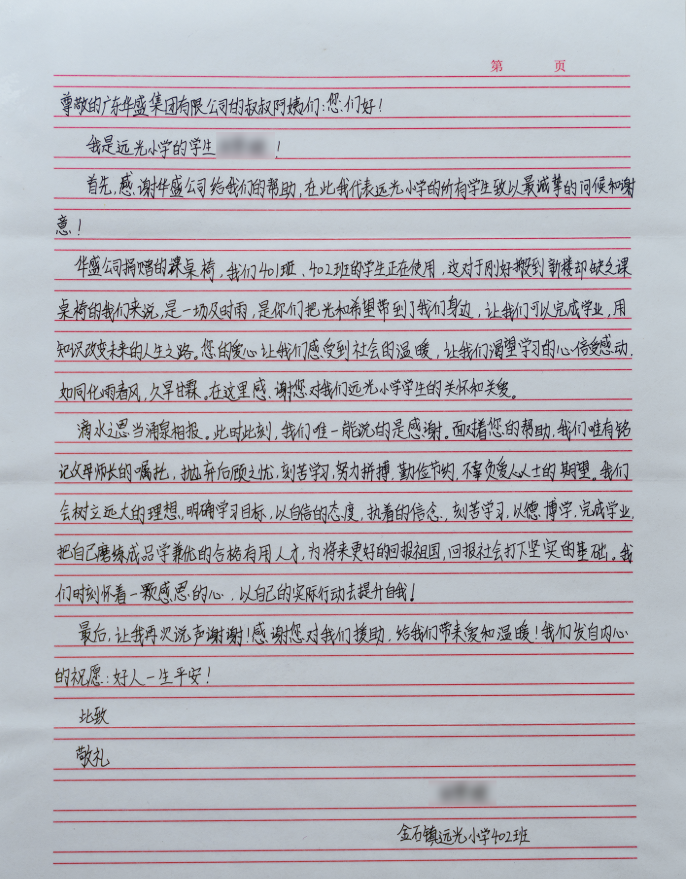 第 页
尊敬的广东华盛集团有限公司的叔叔阿姨们:您们好!
我是远光小学的学生 !
首先,感谢华盛公司给我们的帮助,在此我代表远光小学的所有学生致以最诚挚的问候和谢
意!
华盛公司捐赠的课桌椅,我们401班、402班的学生正在使用,这对于刚好搬到新楼却缺乏课
桌椅的我们来说,是一场及时雨,是你们把光和希望带到了我们身边,让我们可以完成学业,用
知识改变未来的人生之路。您的爱心让我们感受到社会的温暖,让我们渴望学习的心倍受感动,
如同化雨春风,久旱甘霖。在这里感谢您对我们远光小学学生的关怀和关爱。
滴水之恩当涌泉相报。此时此刻,我们唯一能说的是感谢。面对着您的帮助,我们唯有铭
记父母师长的嘱托,抛弃后顾之忧,刻苦学习,努力拼搏,勤俭节约,不辜负爱心人士的期望。我们
会树立远大的理想,明确学习目标,以自信的态度,执着的信念,刻苦学习,以德博学,完成学业,
把自己磨练成品学兼优的合格有用人才,为将来更好的回报祖国,回报社会打下坚实的基础。我
们时刻怀着一颗感恩的心,以自己的实际行动去提升自我!
最后,让我再次说声谢谢!感谢您对我们援助,给我们带来爱和温暖!我们发自内心
的祝愿:好人一生平安!
此致
敬礼
金石镇远光小学402班